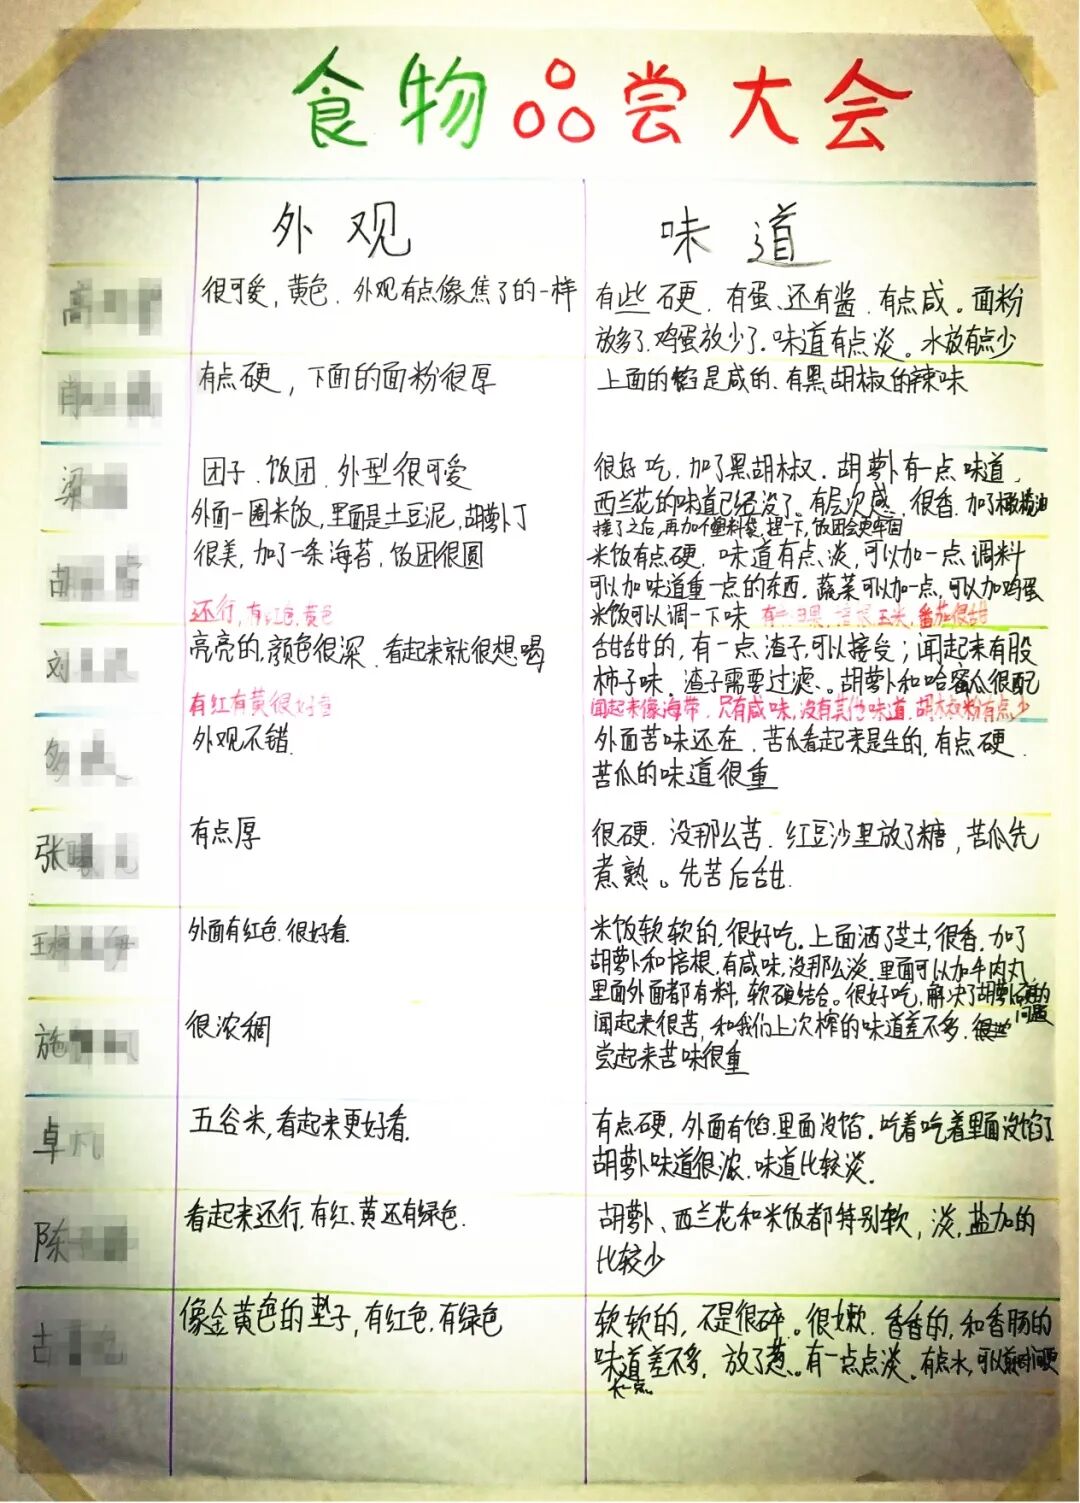 食物品尝大会
外观
味道
高
很可爱,黄色.外观有点像焦了的一样
有些硬.有蛋、还有酱.有点咸。面粉
放多了.鸡蛋放少了.味道有点淡。水放有点少
肖
有点硬,下面的面粉很厚
上面的馅是咸的.有黑胡椒的辣味
梁
团子.饭团.外型很可爱
外面一圈米饭,里面是土豆泥,胡萝卜丁
很好吃.加了黑胡椒.胡萝卜有一点味道,
西兰花的味道已经没了。有层次感.很香.加了橄榄油
捶了之后,再加个塑料袋,捏一下,饭团会更牢固
胡
很美,加了一条海苔,饭团很圆
还行,有红色.黄色
米饭有点硬.味道有点淡,可以加一点调料
可以加味道重一点的东西.蔬菜可以加一点,可以加鸡蛋
米饭可以调一下味
培根.玉米,番茄很甜
刘
亮亮的,颜色很深.看起来就很想喝
有红有黄很好看
甜甜的,有一点渣子,可以接受;闻起来有股
柿子味.渣子需要过滤、。胡萝卜和哈蜜瓜很配
闻起来像海带.只有咸味,没有其他味道.胡木叔粉有点少
多
外观不错.
外面苦味还在.苦瓜看起来是生的,有点硬.
苦瓜的味道很重
张
有点厚
很硬.没那么苦.红豆沙里放了糖,苦瓜先
煮熟。先苦后甜.
王
外面有红色.很好看.
米饭软软的,很好吃.上面洒了芝士,很香.加了
胡萝卜和培根,有咸味,没那么淡.里面可以加牛肉丸
里面外面都有料,软硬结合。很好吃,解决了胡萝卜硬的
问题
施
很浓稠
闻起来很苦,和我们上次榨的味道差不多.
尝起来苦味很重
卓
五谷米,看起来更好看.
有点硬,外面有馅.里面没馅.吃着吃着里面没馅了
胡萝卜味道很浓.味道比较淡.
陈
看起来还行.有红、黄还有绿色.
胡萝卜、西兰花和米饭都特别软,淡,盐加的
比较少
古
像金黄色的垫子,有红色.有绿色
软软的,不是很碎。很嫩.香香的,和香肠的
味道差不多,放了葱。有一点点淡.有点水,可以煎时间更
长一点。